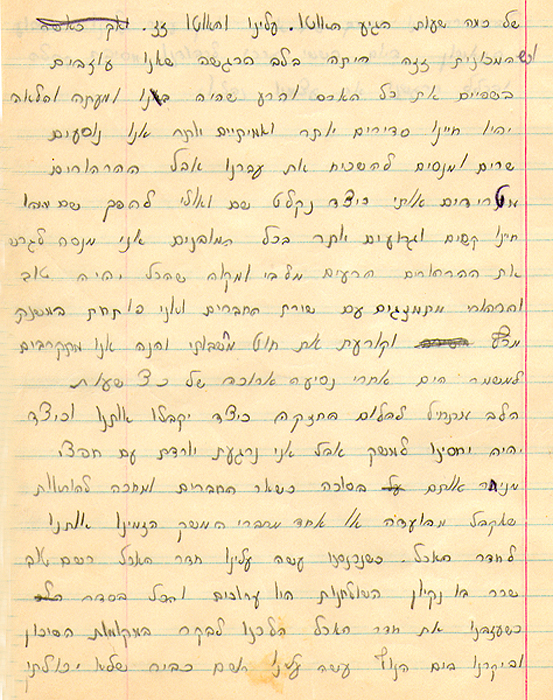 של כמה שעות הגיע האוטו. עלינו והאוטו זז.
וכשהמכונית זזה היתה בלב הרגשה שאנו עוזבים
בשמיים את כל האדם והרע שהיה בנו ומעתה והלאה
יהיו חיינו סדירים יותר ואמיתיים יותר אנו נוסעים
שרים ומנסים להשכיח את עברנו אבל ההרהורים
מטרידים אותי כיצד נקלט שם ואולי להפך שם
חיינו קשים וגרועים יותר בכל המובנים אני מנסה לגרש
את ההרהורים הרעים מלבי ומקוה שהכל יהיה טוב
והרהורי מתמזגים עם שירת החברים ואני פותחת
וקורעת את חוט מחשבותי והנה אנו מתקרבים
למשמר הים אחרי נסיעה ארוכה של כ 3 שעות
הלב מתחיל להלום בחזקה כיצד יקבלו אותנו וכיצד
יהיה יחסינו למשק אבל אני נרגעת יורדת עם חפצי
מניחה אותם בסוכה כשאר החברים ומחכה להוראות
שאקבל מהועדה או אחד מחברי המשק הזמינו אותנו
לחדר האכל. כשנכנסנו עשה עלינו חדר האכל רושם טוב
שרר בו נקיון השולחנות היו ערוכים והכל בסדר
כשעזבנו את חדר האכל הלכנו לבקר במקומות השיכון
וביקרנו בים הנוף עשה עלינו רושם כביר שלא יכולתי